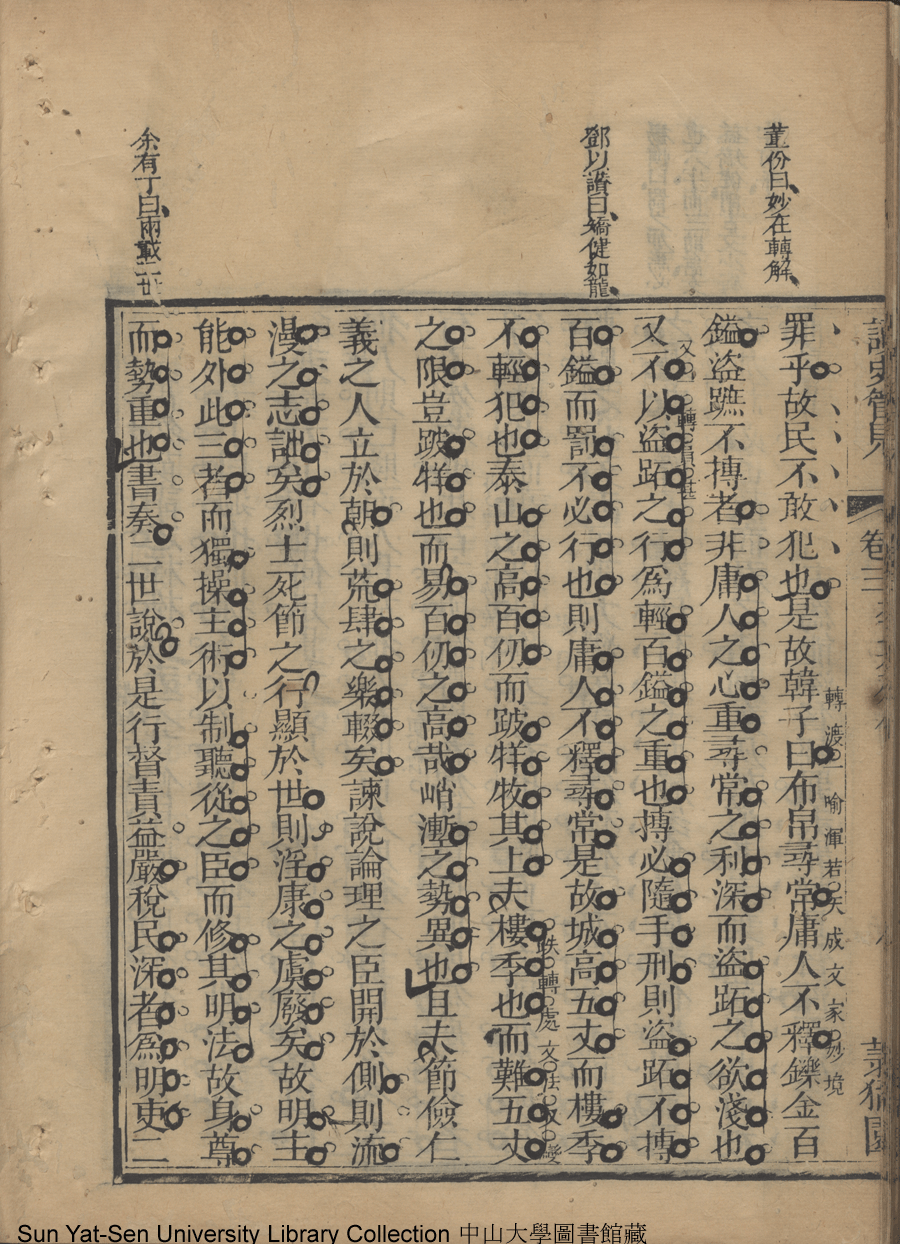 董份曰妙在轉解
鄧以讚曰矯健如龍
余有丁曰兩載二世
卷三
罪乎故民不敢犯也是故韓子曰布帛尋常庸人不釋鑠金百
轉渡一喻渾若天成文家妙境
鎰盜蹠不搏者非庸人之心重尋常之利深而盜跖之欲淺也
又不以盜跖之行為輕百鎰之重也搏必隨手刑則盜跖不搏
百鎰而罰不必行也則庸人不釋尋常是故城高五丈而樓季
不輕犯也泰山之高百仞而跛牂牧其上夫樓季也而難五丈
之限豈跛牂也而易百仞之高哉峭漸之勢異也且夫節儉仁
義之人立於朝則荒肆之樂輟矣諫說論理之臣開於側則流
漫之志詘矣烈士死節之行顯於世則淫康之虞廢矣故明主
能外此三者而獨操主術以制聽從之臣而修其明法故身尊
而勢重也書奏二世說於是行督責益嚴稅民深者為明吏二
Sun Yat-Sen University Library Collection 中山大學圖書館藏